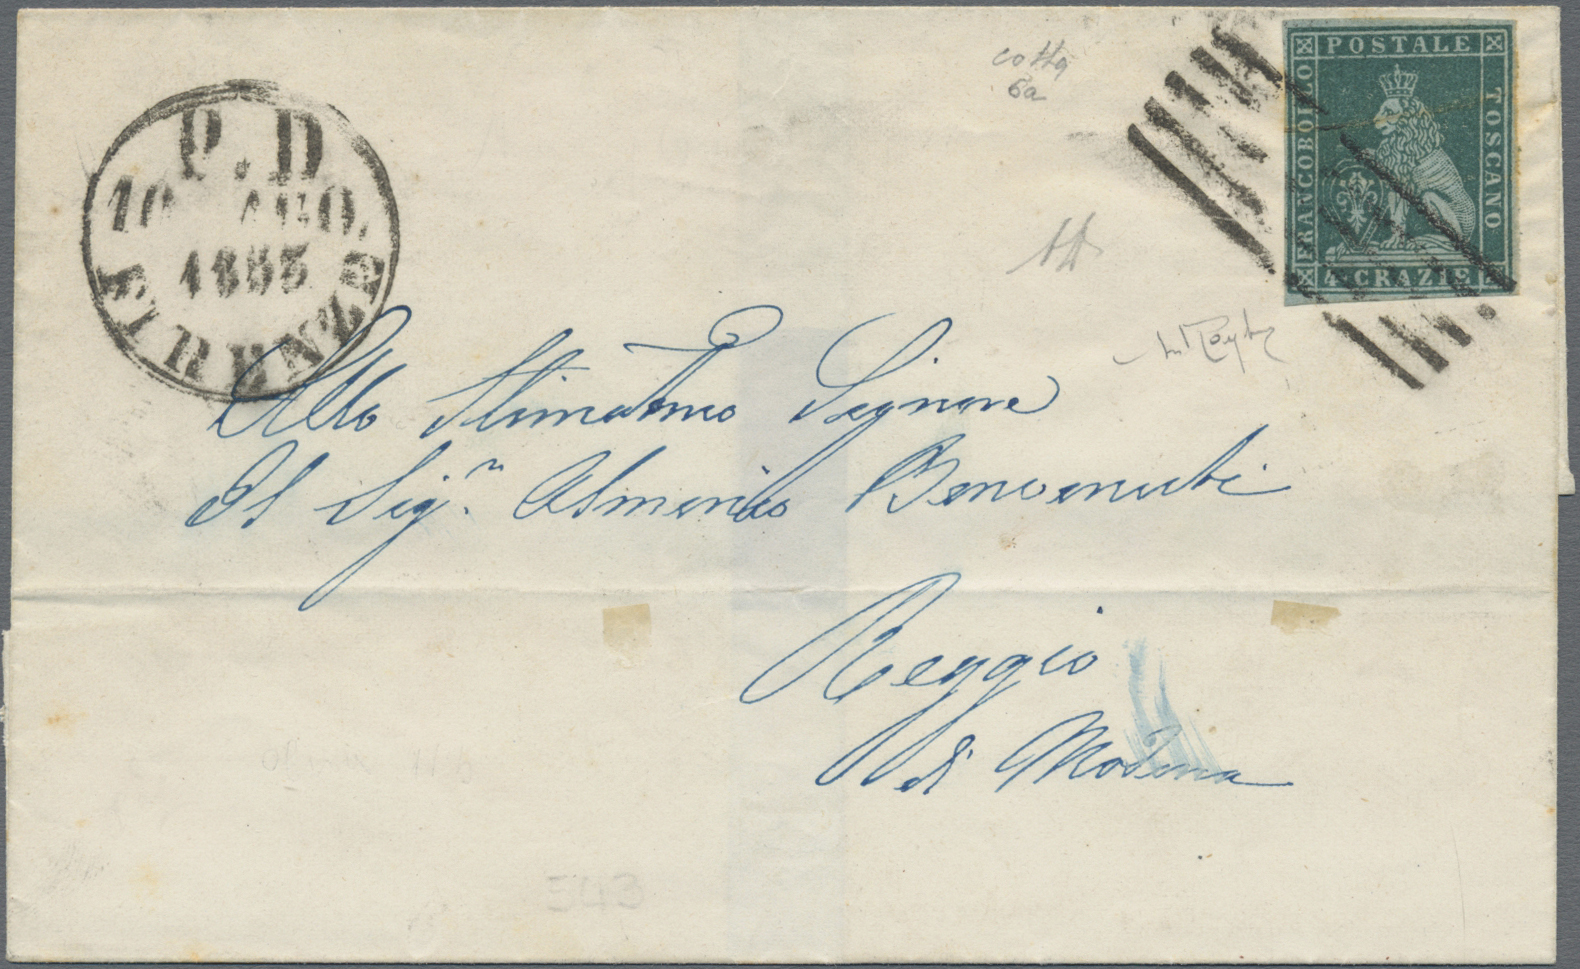 P.D
10 AGO.
1853
FIRENZE
cotta
6a
POSTALE
FRANCOBOLLO
TOSCANO
4. CRAZIE
Allo Stimatmo Signore
Il Sigr. Almerico Benvenuti
Reggio
di Modena
543